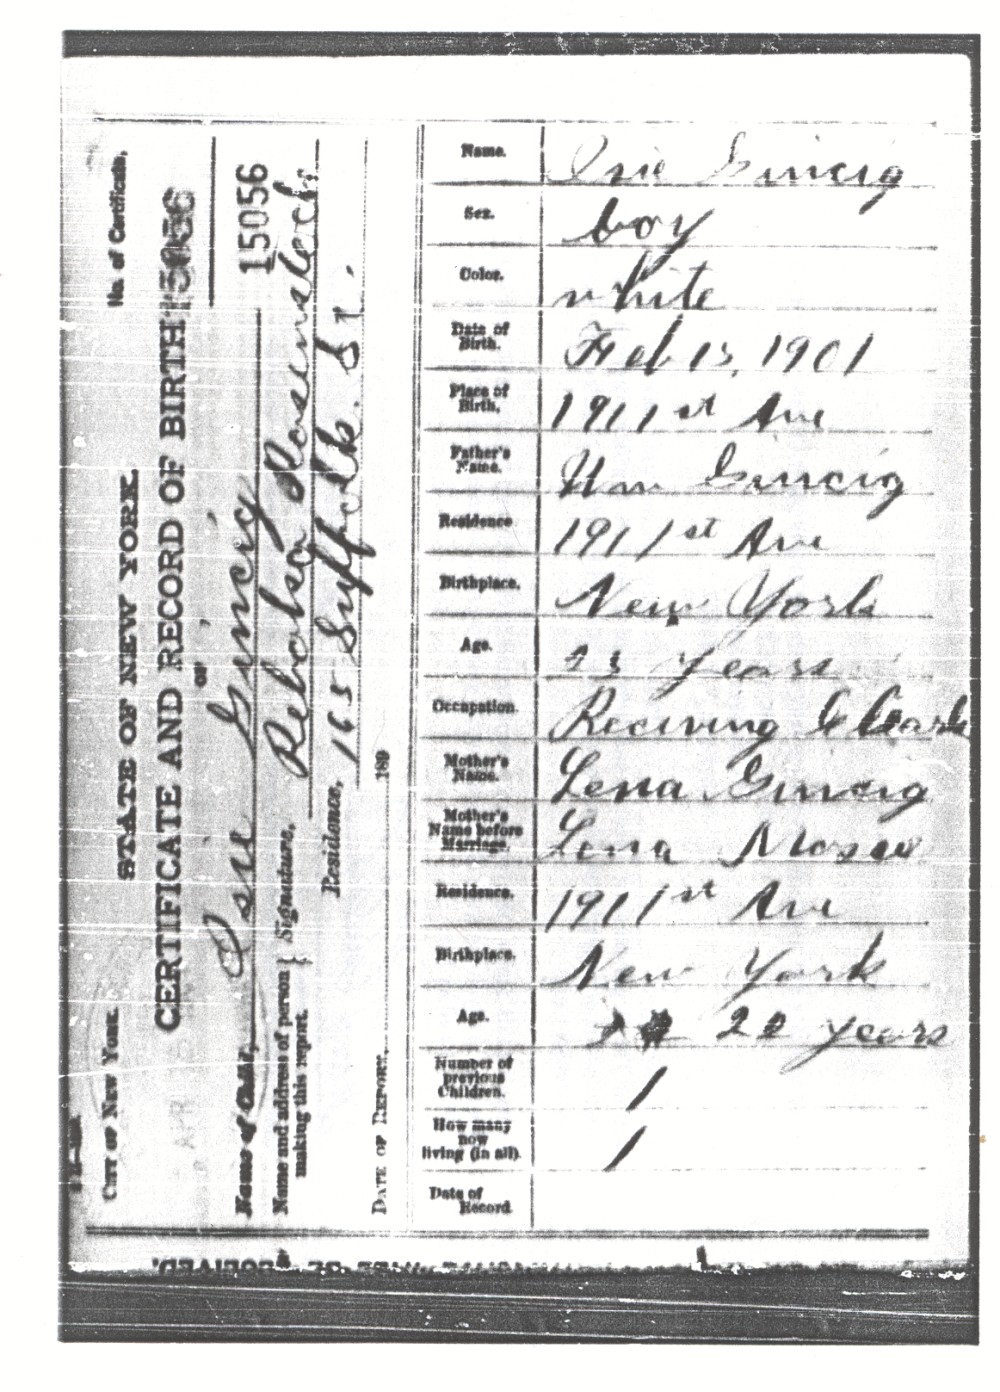 STATE OF NEW YORK.
CITY OF NEW YORK.
No. of Certificate,
CERTIFICATE AND RECORD OF BIRTH 15056
OF
Name of Child,
15056
Name and address of person making this report. } Signature,
Residence, 165 Suffolk St.
DATE OF REPORT, 189
Name. Gincig
Sex. boy
Color. white
Date of Birth. Feb 15, 1901
Place of Birth, 191 1st Ave
Father's Name. Wm Gincig
Residence 191 1st Ave
Birthplace. New York
Age. 23 years
Occupation. Reciving Cleark
Mother's Name. Lena Gincig
Mother's Name before Marriage. Lena
Residence. 191 1st Ave
Birthplace. New York
Age. 22 years
Number of previous Children. 1
How many now living (in all). 1
Date of Record.